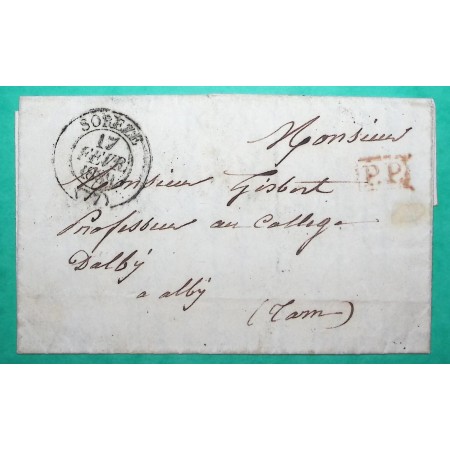 SOREZE
17
FEVR
(77)
P.P.
Monsieur
Monsieur Gisbert
Professeur au College
Dalby
a alby
(Tarn)